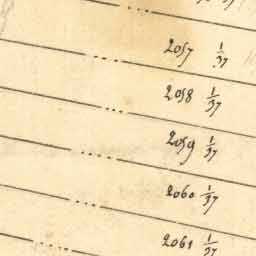 2057 1/37
2058 1/37
2059 1/37
2060 1/37
2061 1/37